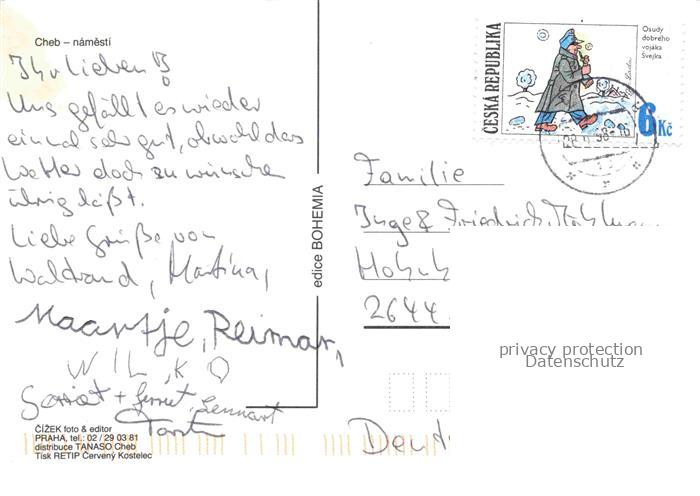 Cheb – náměstí
Ihr Lieben B
Uns gefällt es wieder
einmal sehr gut, obwohl das
Wetter doch zu wünschen
übrig läßt.
Liebe Grüße von
Waltraud, Martina,
Maartje, Reimar,
WILKO
Gerriet + Gerriet, Lennart
ČÍŽEK foto & editor
PRAHA, tel.: 02 / 29 03 81
distribuce TANASO Cheb
Tisk RETIP Červený Kostelec
edice BOHEMIA
ČESKÁ REPUBLIKA
Osudy
dobrého
vojáka
Švejka
6 Kč
Familie
Inge & Friedrich
2644
privacy protection
Datenschutz